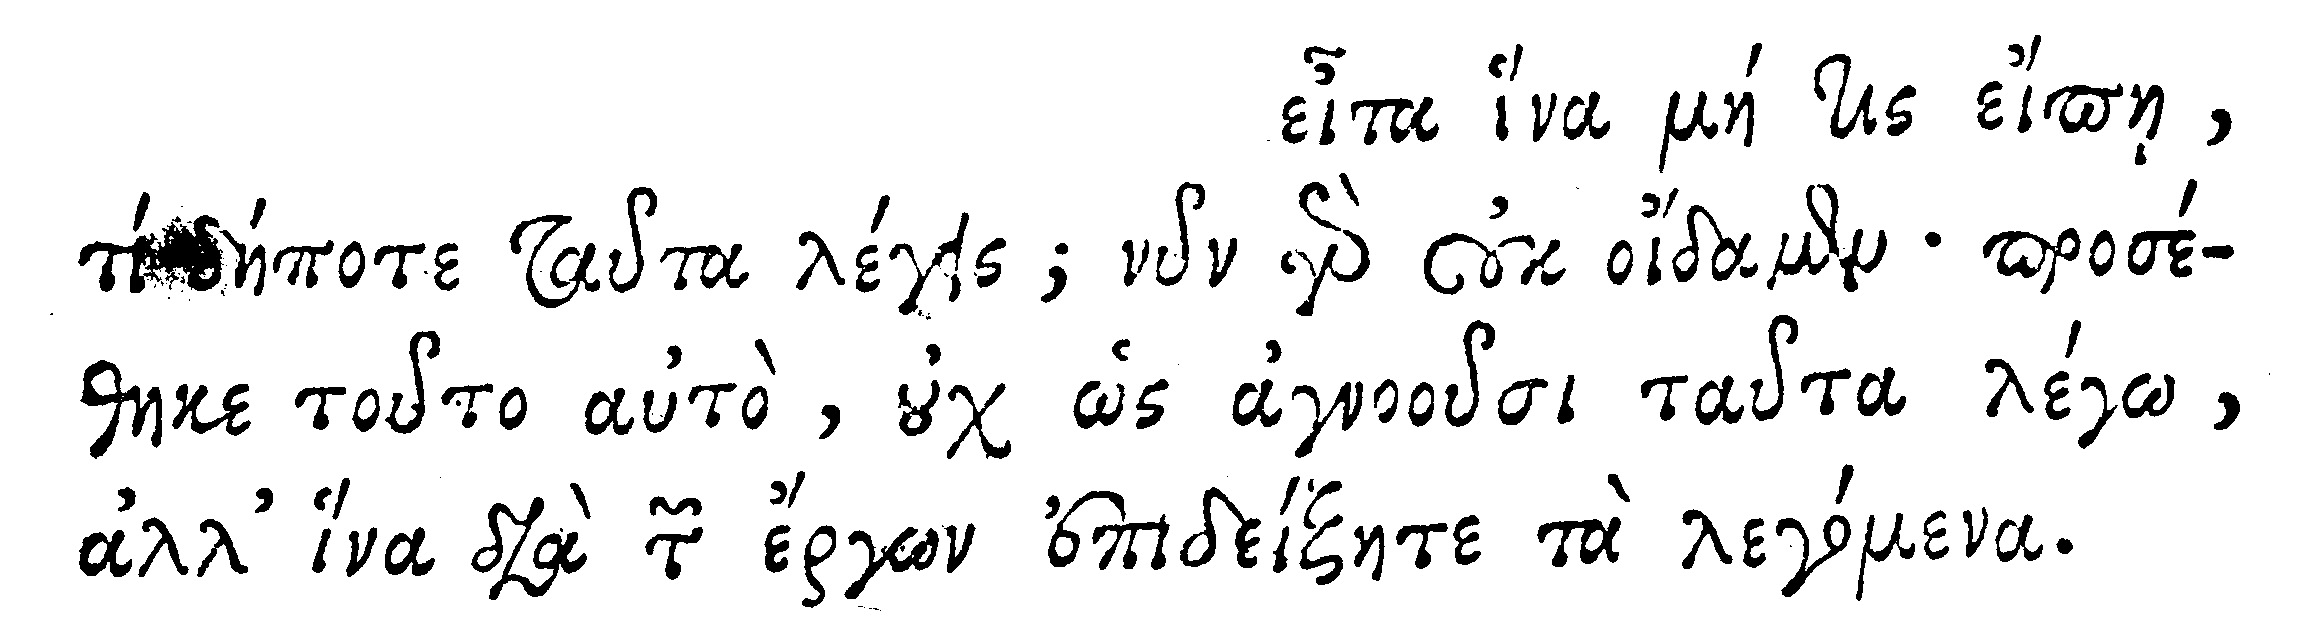 εἶτα ἵνα μή τις εἴπῃ,
τί δήποτε ταῦτα λέγεις; νῦν γὰρ οὐκ οἴδαμεν· προσέ-
θηκε τοῦτο αὐτὸ, οὐχ ὡς ἀγνοοῦσι ταῦτα λέγω,
ἀλλ' ἵνα διὰ τῶν ἔργων ἐπιδείξητε τὰ λεγόμενα.